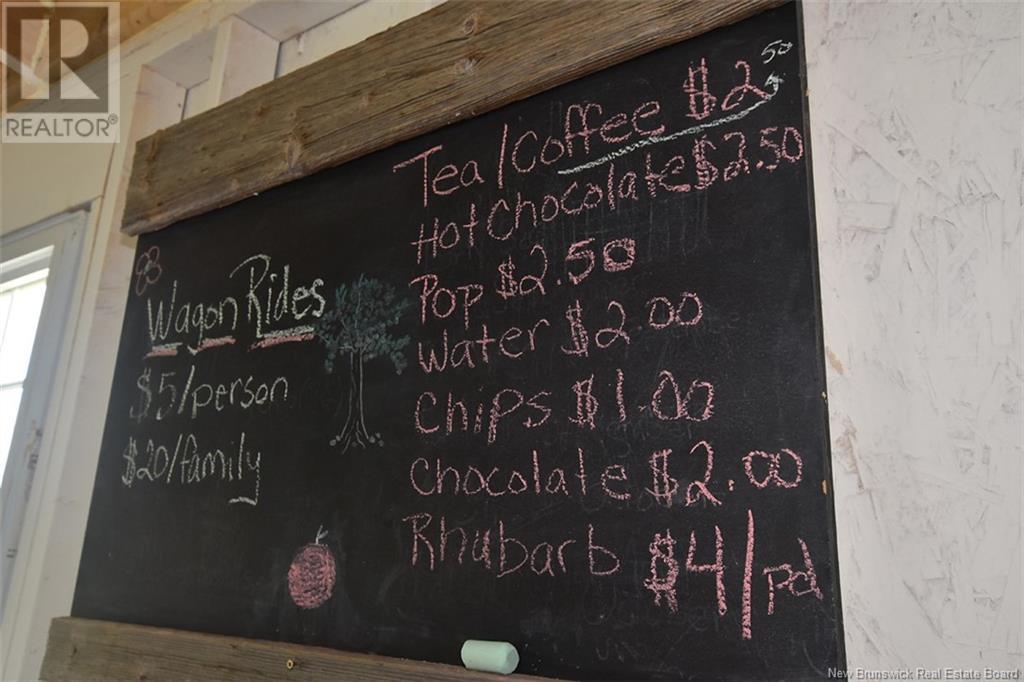 R
REALTOR®
Wagon Rides
$5/person
$20/family
Tea/Coffee $2.50
Hot Chocolate $2.50
Pop $2.50
Water $2.00
Chips $1.00
Chocolate $2.00
Rhubarb $4/pd
New Brunswick Real Estate Board